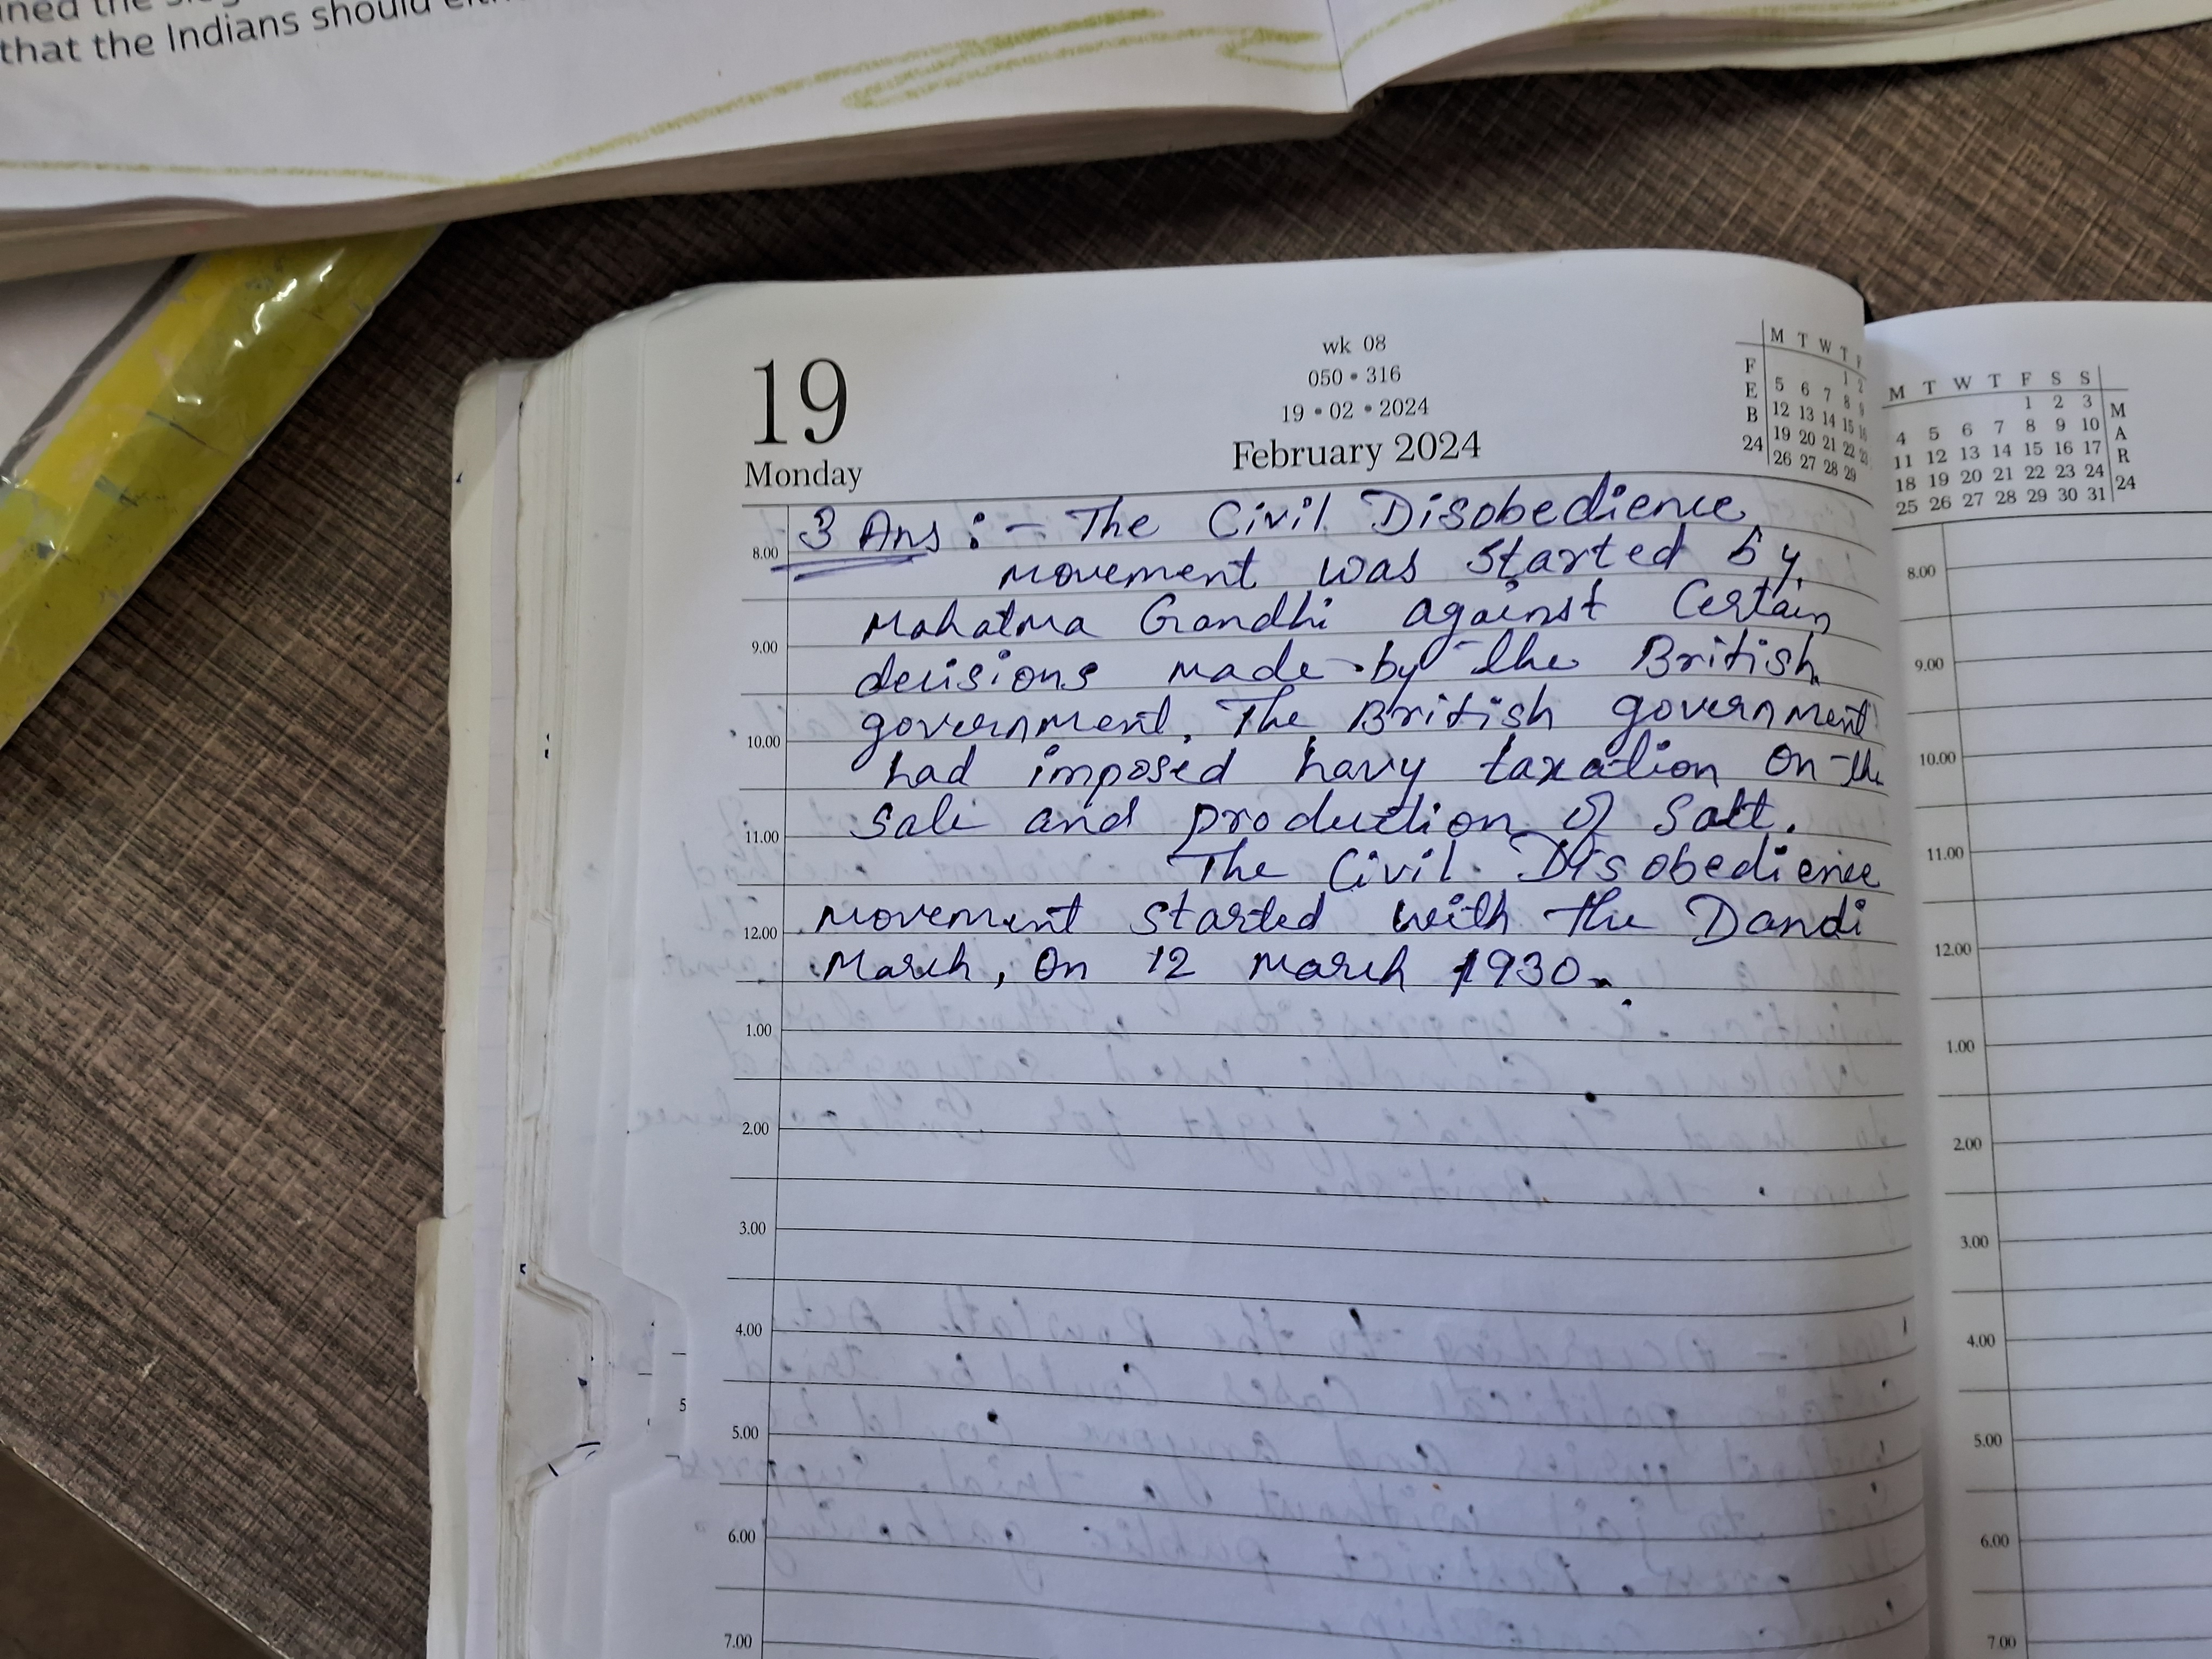 that the Indians should
19
Monday
wk 08
050 • 316
19 • 02 • 2024
February 2024
F E B 24
M T W T F
1 2
5 6 7 8 9
12 13 14 15 16
19 20 21 22 23
26 27 28 29
M T W T F S S
1 2 3
4 5 6 7 8 9 10
11 12 13 14 15 16 17
18 19 20 21 22 23 24
25 26 27 28 29 30 31
M A R 24
3 Ans :- The Civil Disobedience
movement was started by
Mahatma Gandhi against Certain
decisions made by the British
government. The British government
had imposed havy taxation on the
sale and production of Salt.
The Civil Disobedience
movement started with the Dandi
March, On 12 March 1930.
8.00
9.00
10.00
11.00
12.00
1.00
2.00
3.00
4.00
5.00
6.00
7.00
8.00
9.00
10.00
11.00
12.00
1.00
2.00
3.00
4.00
5.00
6.00
7.00